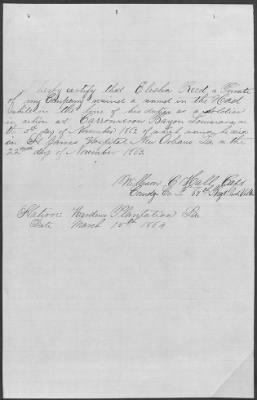 hereby certify that Elisha Reed, a Private
of my Company received a wound in the Head
while in the line of his duties as a Soldier
in action at Carroncrow Bayou Louisiana on
the 3rd day of November 1863 of which wound he died
in St James Hospital New Orleans La on the
22nd day of November 1863.
William C Hall, Capt
Comdg Co I 60th Regt Ind Vols
Station: Plantation La
Date March 15th 1864